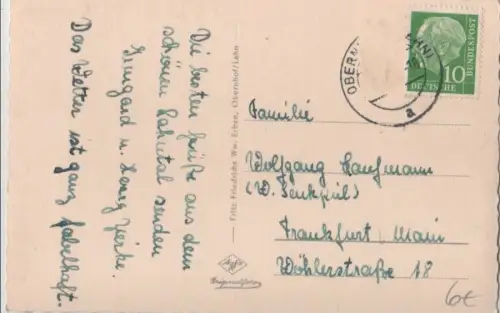 Die besten Grüße aus dem
schönen Lahntal senden
Irmgard u. Georg
Das Wetter ist ganz fabelhaft.
Fritz Friedrichs Ww. Erben, Obernhof/Lahn
DEUTSCHE BUNDESPOST
10
OBERN
a
Familie
Wolfgang Kaufmann
Frankfurt Main
Wöhlerstraße 18
6€